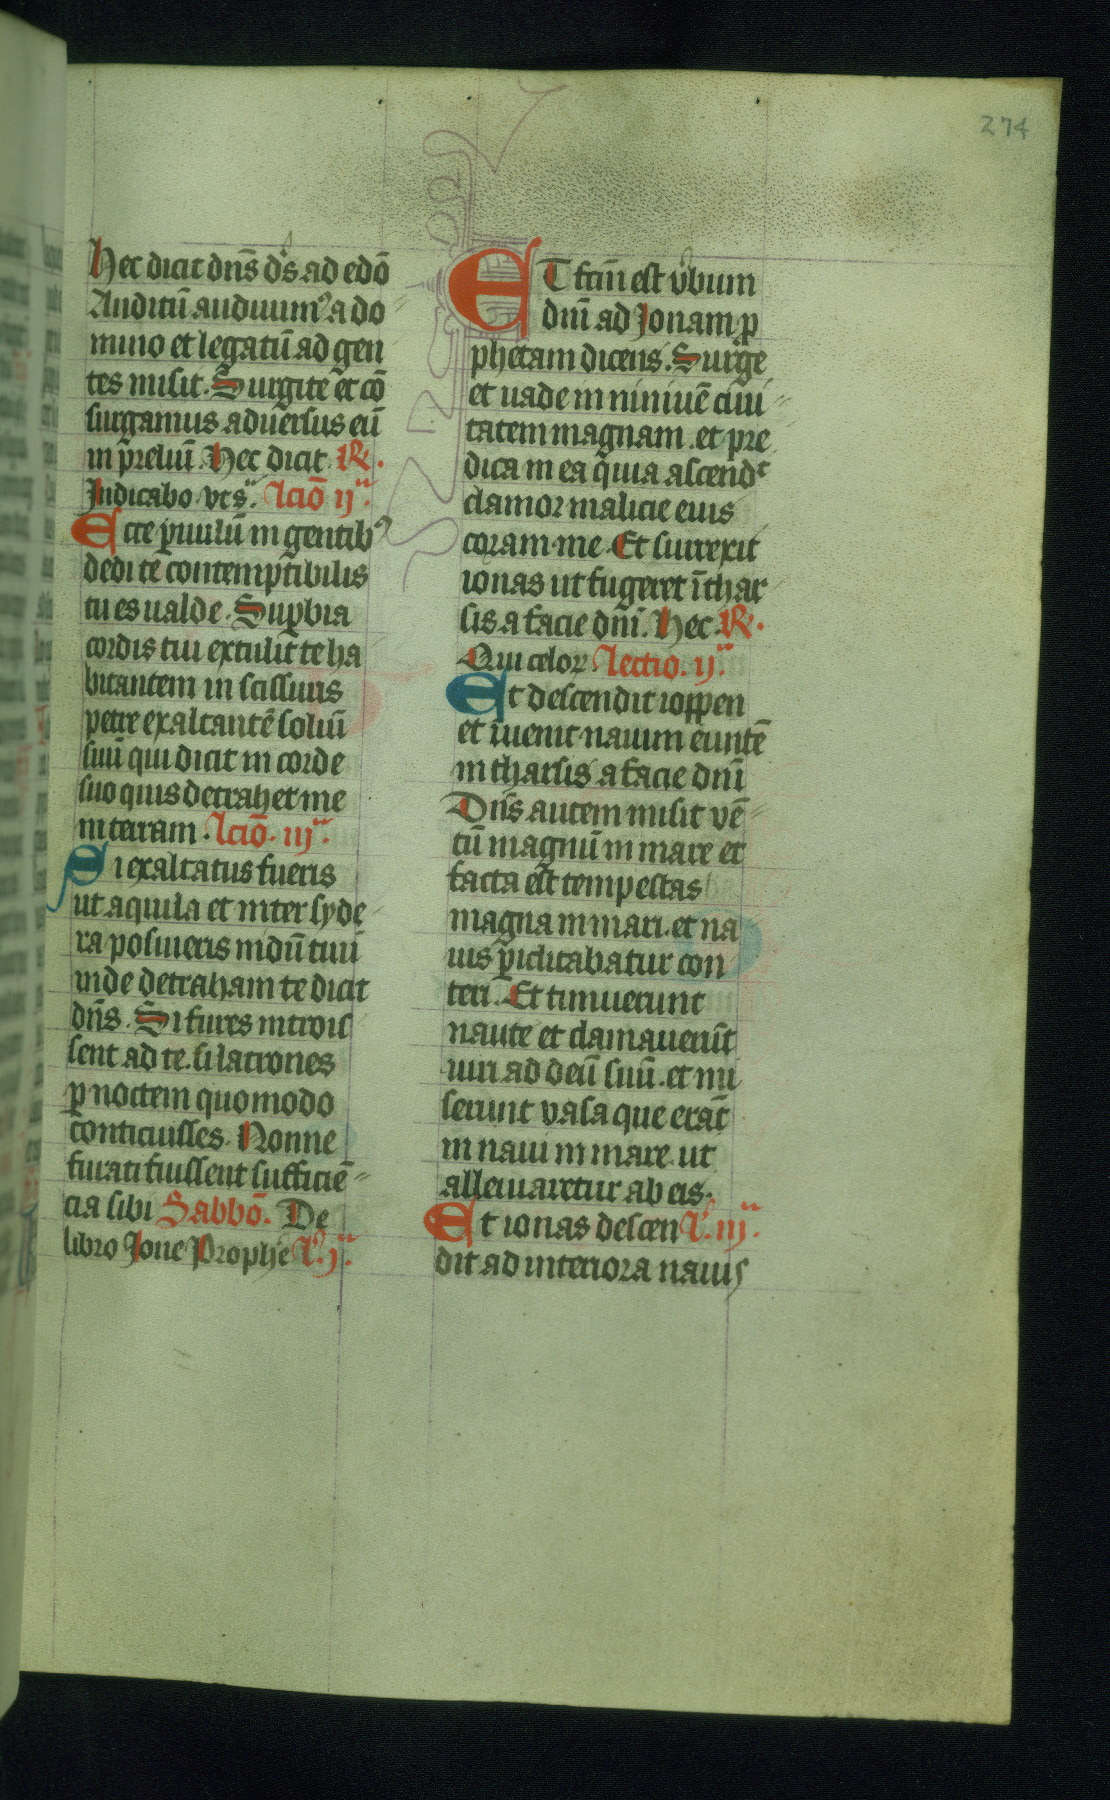 274
Hec dicit dn̄s d's ad edō
Auditū audiuim⁹ a do
mino et legatū ad gen
tes misit. Surgite et cō
surgamus aduersus eū
in p̄reliū. Hec dicit. R̸.
Indicabo. vt s.ͣ lc̄io ij.ͣ
Ecce p̄uulū in gentib⁹
dedi te contemptibilis
tu es ualde. Sup̲bia
cordis tui extulit te ha
bitantem in scissuris
petre exaltantē soliū
suū qui dicit in corde
suo quis detrahet me
in terram. lc̄io. iij.ͣ
Si exaltatus fueris
ut aquila et inter syde
ra posuieris nidū tuū
inde detraham te dicit
dn̄s. Si fures introis
sent ad te. si latrones
p̲ noctem quomodo
conticuisses. Nonne
furati fuissent sufficiē
cia sibi Sabbō. De
libro Ione Prophe l'. j.ͣ
ET fcm̄ est v̄bum
dn̄i ad Jonam p̲
phetam dicens. Surge
et uade in niniuē ciui
tatem magnam. et pre
dica in ea quia ascendᵗ
clamor malicie eius
coram me. Et surrexit
ionas ut fugeret ī thar
sis a facie dn̄i. Hec. R̸.
Qui celoꝝ. lectio. ij.ͣ
Et descendit ioppen
et iuenit nauim euntē
in tharsis a facie dn̄i
Dn̄s autem misit vē
tū magnū in mare et
facta est tempestas
magna in mari. et na
uis p̲iclitabatur con
teri. Et timuerunt
naute et clamauerūt
uiri ad deū suū. et mi
serunt vasa que erāt
in naui in mare. ut
alleuiaretur ab eis.
Et ionas descen l'. iij.ͣ
dit ad interiora nauis